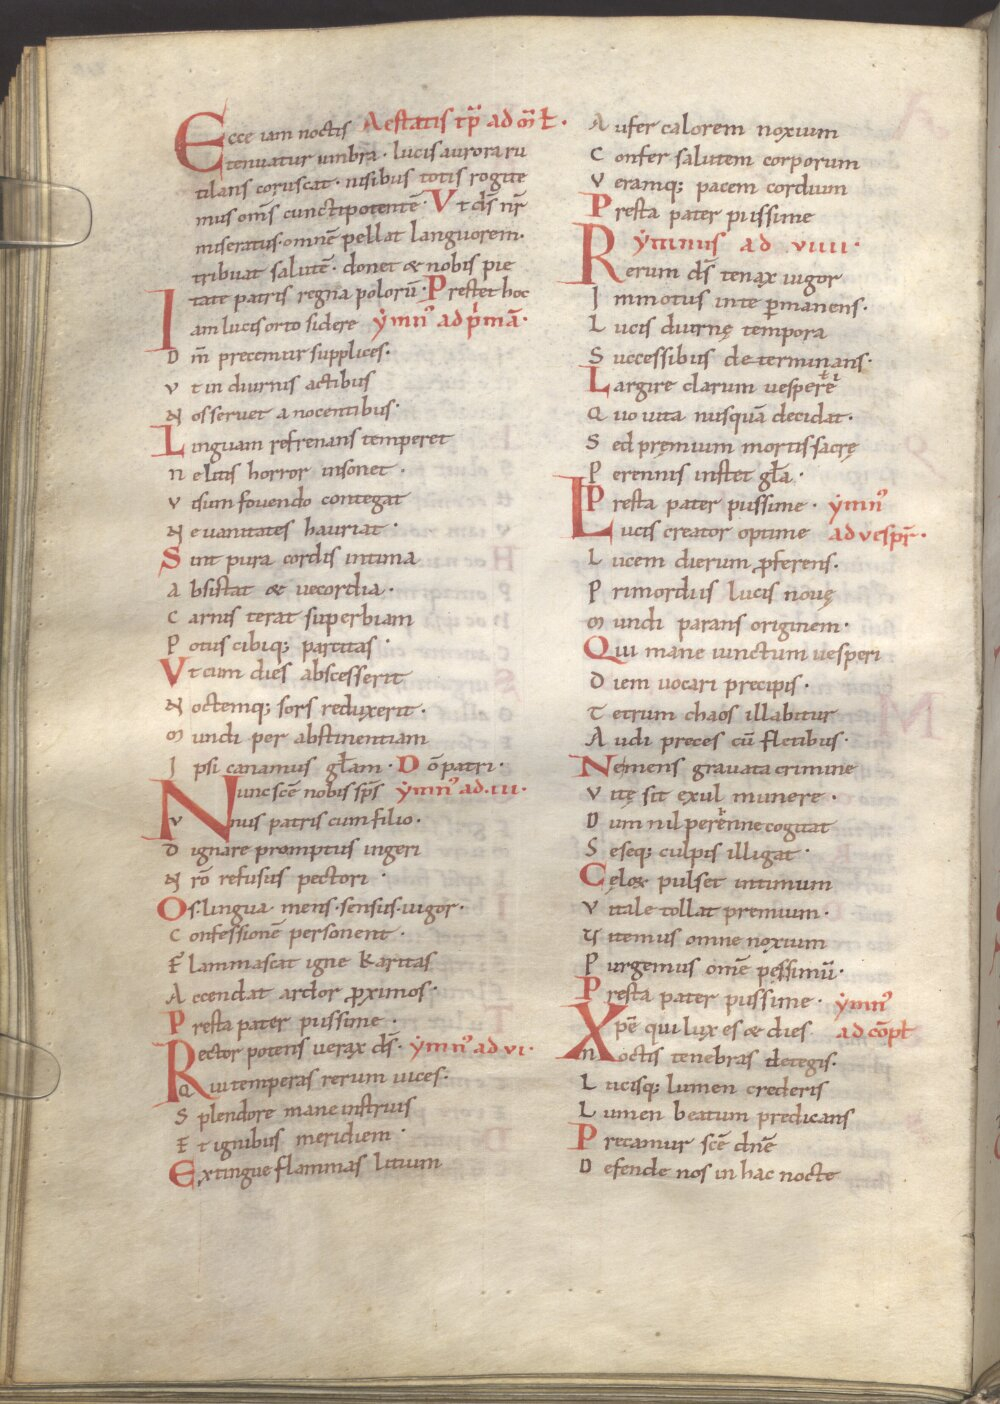 Ecce iam noctis Aestatis tp̄r ad m̄t·
tenuatur umbra· lucis aurora ru
tilans coruscat· nisibus totis rogite
mus om̄s cunctipotentē· Vt dn̄s nr̄
miseratus· omnē pellat languorem·
tribuat salutē· donet & nobis pie
tate patris regna polorū· Prestet hoc
Iam lucis orto sidere ẏmn᷒ ad p̄mā·
Dm̄ precemur supplices·
Vt in diurnis actibus
Nos servet a nocentibus·
Linguam refrenans temperet
ne litis horror insonet·
Visum fovendo contegat
Ne vanitates hauriat·
Sint pura cordis intima
absistat & uecordia·
Carnis terat superbiam
Potus cibiq; parcitas·
Vt cum dies abscesserit
Noctemq; sors reduxerit·
mundi per abstinentiam
Ipsi canamus gl̄am· Dō patri·
Nunc sc̄e nobis sp̄s ẏmn᷒ ad·III·
Vnus patris cum filio·
Dignare promptus ingeri
Nrō refusus pectori·
Os· lingua mens· sensus· uigor·
Confessionē personent·
Flammascat igne karitas
Accendat ardor ꝓximos·
Presta pater piissime·
Rector potens uerax dn̄s· ẏmn᷒ ad VI·
Qui temperas rerum uices·
Splendore mane instruis
Et ignibus meridiem·
Extingue flammas litium
Aufer calorem noxium
Confer salutem corporum
Veramq; pacem cordium
Presta pater piissime
ẏmnus ad VIIII·
Rerum dn̄s tenax uigor
Immotus in te ꝑmanens·
Lucis diurnę tempora
Successibus determinans·
Largire clarum uespere
Quo uita nusquā decidat·
Sed pręmium mortis sacrę
Perennis instet gl̄a·
Presta pater piissime· ẏmn᷒
Lucis creator optime ad uesp̄r·
Lucem dierum ꝓferens·
Primordiis lucis nouę
mundi parans originem·
Qui mane iunctum uesperi
Diem uocari precipis·
Tetrum chaos illabitur
Audi preces cū fletibus·
Ne mens grauata crimine
Vitę sit exul munere·
Dum nil perenne cogitat
Seseq; culpis illigat·
Cęlox pulset intimum
Vitale tollat premium·
Vitemus omne noxium
Purgemus om̄e pessimū·
Presta pater piissime· ẏmn᷒
Xpē qui lux es & dies ad cōpl̄
noctis tenebras detegis·
Lucisq; lumen crederis
Lumen beatum predicans
Precamur sc̄e dn̄e
Defende nos in hac nocte